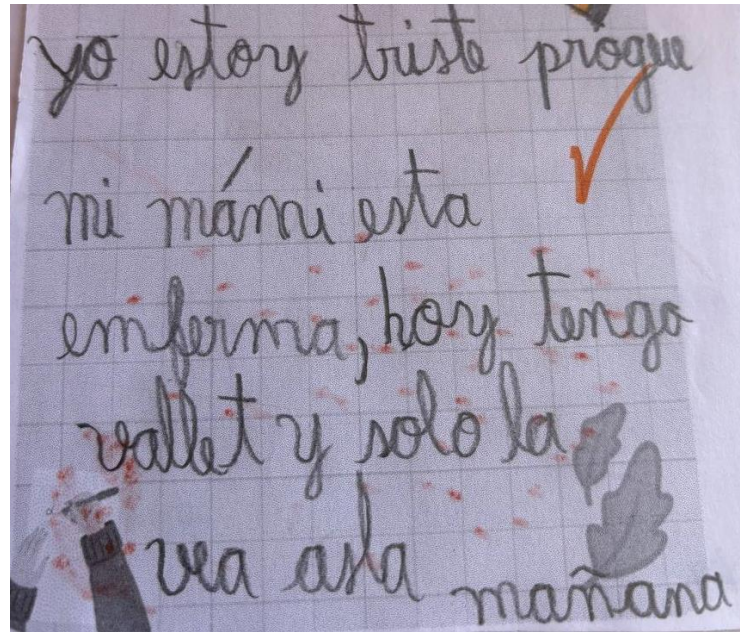 yo estoy triste progue
mi mámi esta
emferma, hoy tengo
vallet y solo la
vea asta mañana